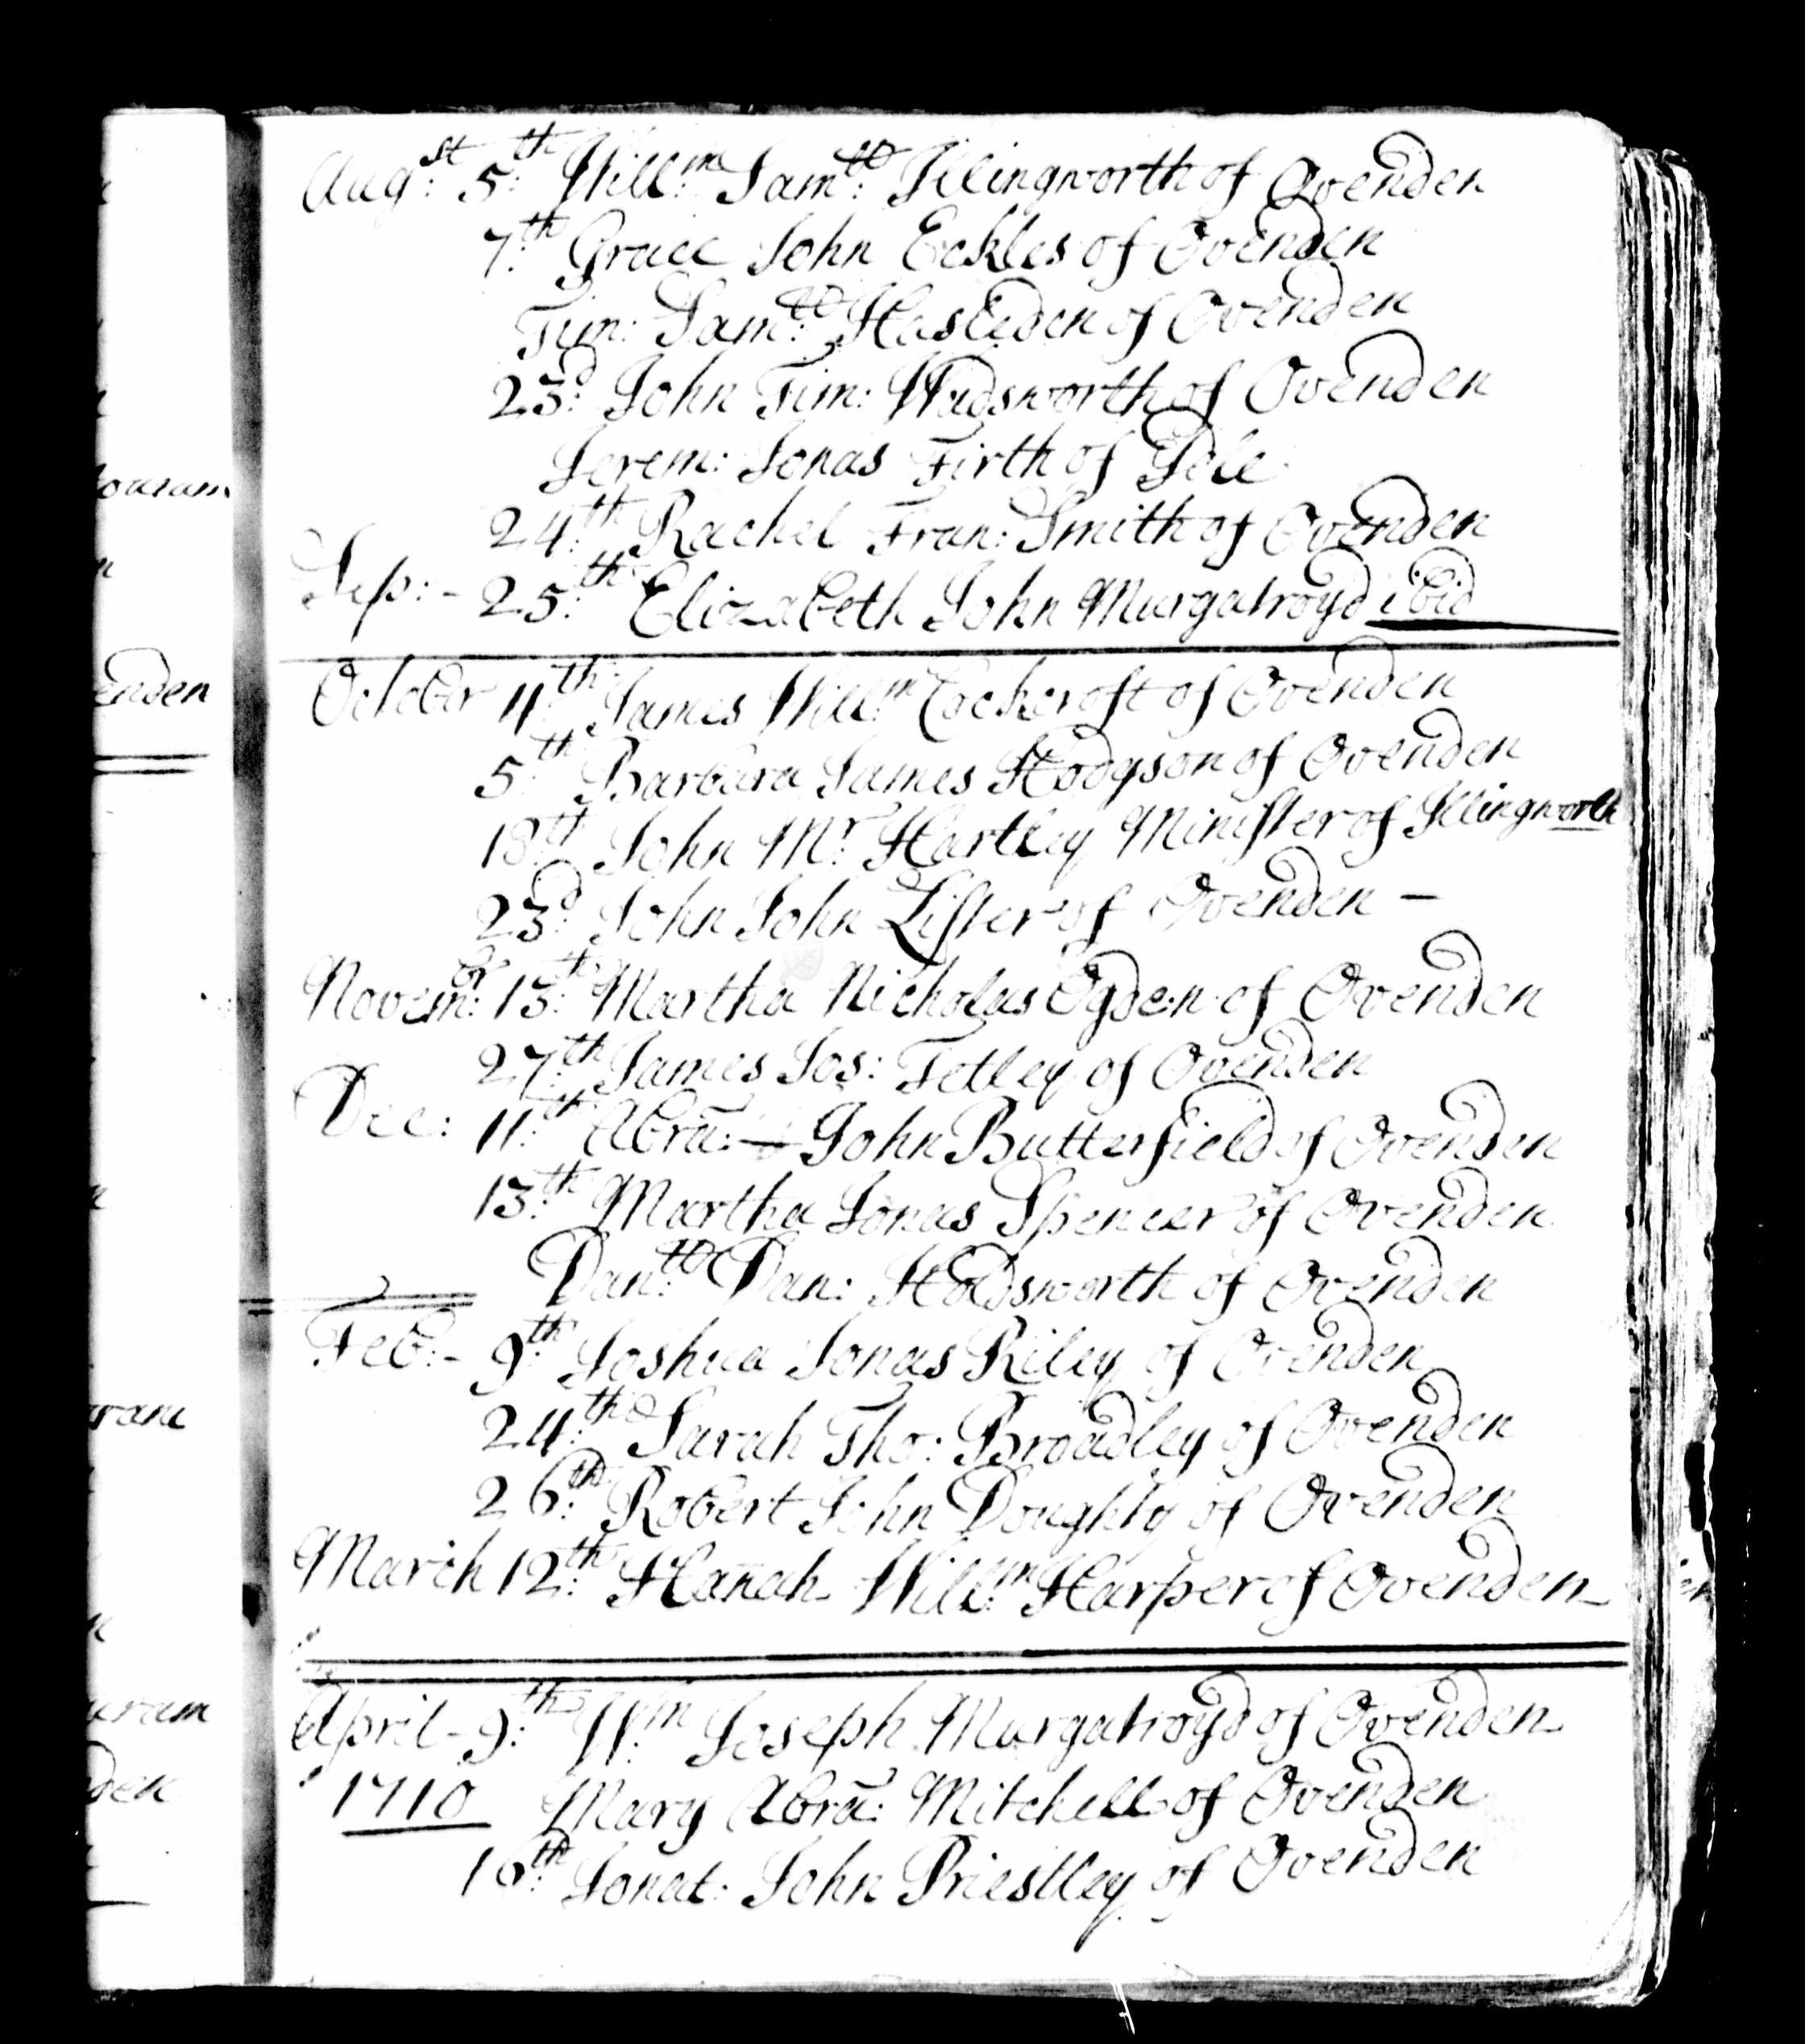 Aug:st 5:th Will:m Sam:ll Illingworth of Ovenden
7:th Grace John Eckles of Ovenden
Tim: Sam:ll Hasleden of Ovenden
23:d John Tim: Wadsworth of Ovenden
Jerem: Jonas Firth of Idle
24:th Rachel Fran: Smith of Ovenden
Sep: - 25:th Elizabeth John Murgatroyd ibid
October 4:th James Will:m Cockcroft of Ovenden
5:th Barbara James Hodgson of Ovenden
18:th John Mr Hartley Minister of Illingworth
23:d John John Lister of Ovenden -
Novem:br 13:th Martha Nicholas Ogden of Ovenden
27:th James Jos: Tetley of Ovenden
Dec: 11:th Abra: - John Butterfield of Ovenden
13:th Martha Jonas Spencer of Ovenden
Dan:ll Dan: Holdsworth of Ovenden
Feb: - 9:th Joshua Jonas Riley of Ovenden
24:th Sarah Tho: Broadley of Ovenden
26:th Robert John Doughty of Ovenden
March 12:th Hanah Will:m Harper of Ovenden
April - 9:th W:m Joseph Murgatroyd of Ovenden
1710 Mary Abra: Mitchell of Ovenden
16:th Jonat: John Priestley of Ovenden